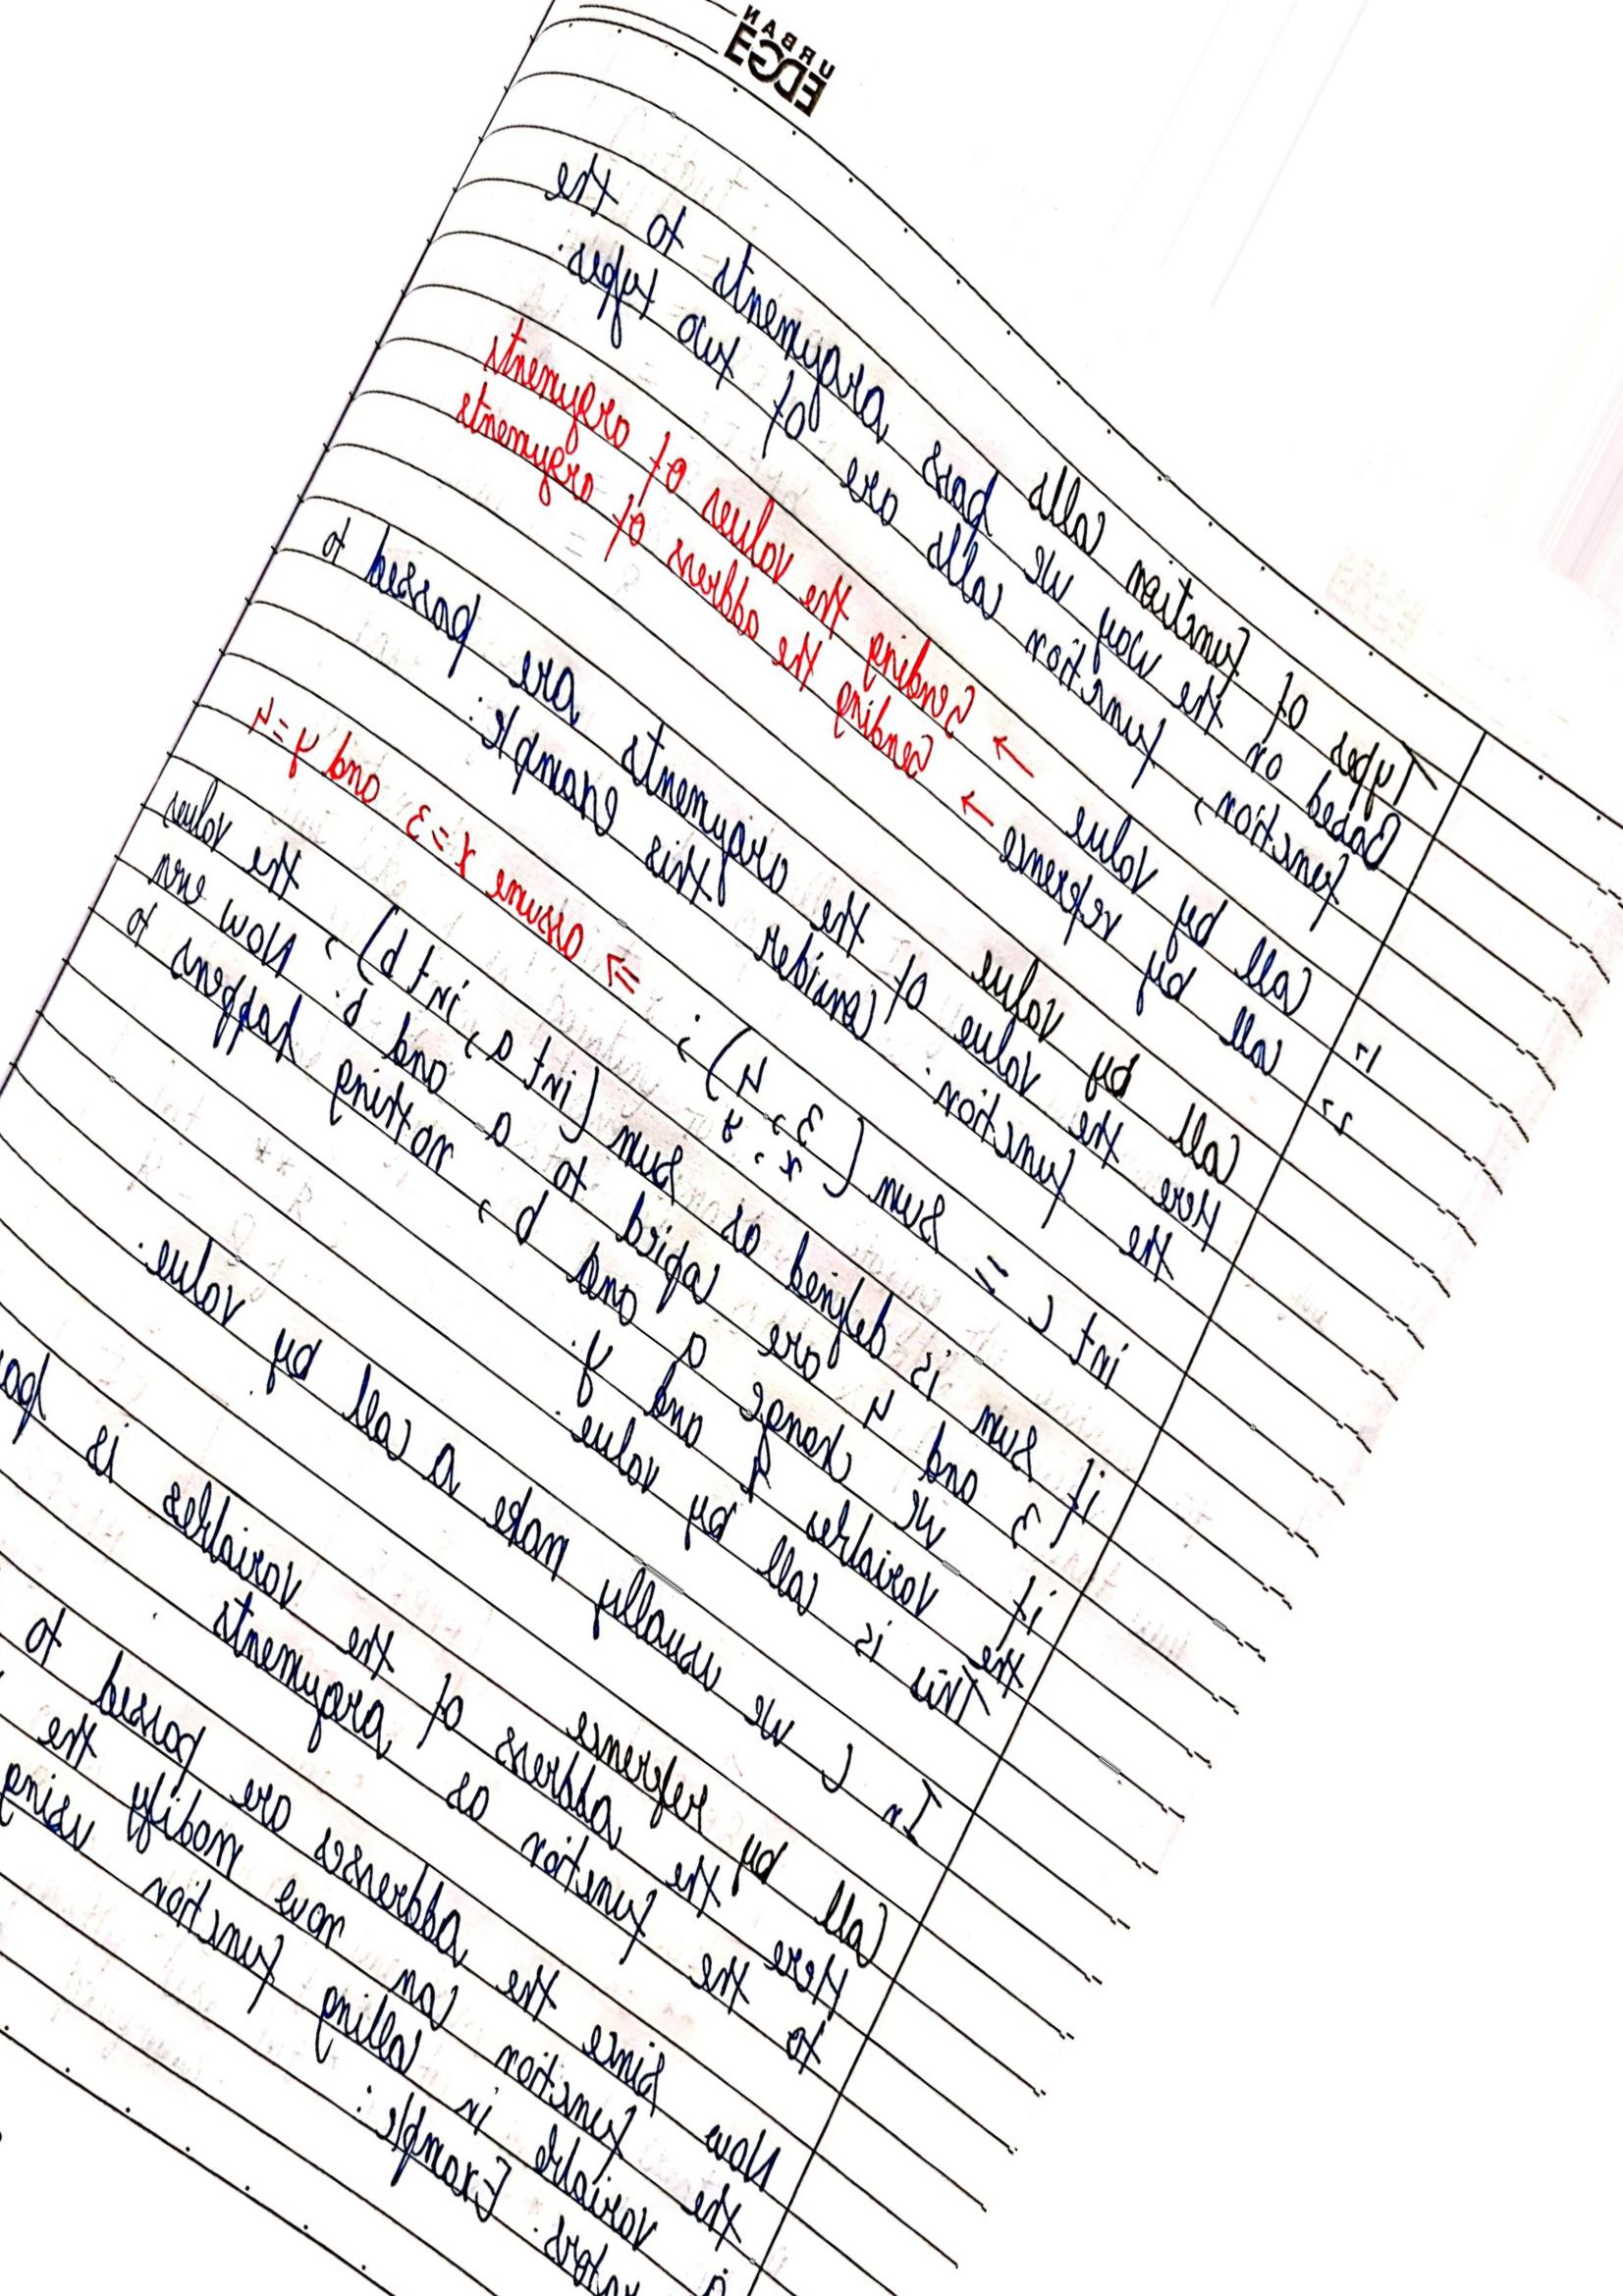 URBAN
EDGE
Types of function calls
Based on the way we pass arguments to the
function, function calls are of two types.
1. Call by value → Sending the values of arguments
2. call by reference → Sending the address of arguments
Call by value
Here the value of the arguments are passed to
the function. Consider this example:
int c = Sum (3, 4); ⇒ assume x=3 and y=4
x, y
if sum is defined as sum (int a, int b), the values
3 and 4 are copied to a and b. Now even
if we change a and b, nothing happens to
the variables x and y.
This is call by value.
In C we usually make a call by value.
Call by reference
Here the address of the variables is
to the function as arguments
Now since the addresses are passed to
the function can now modify the
variable in calling function using
Example: